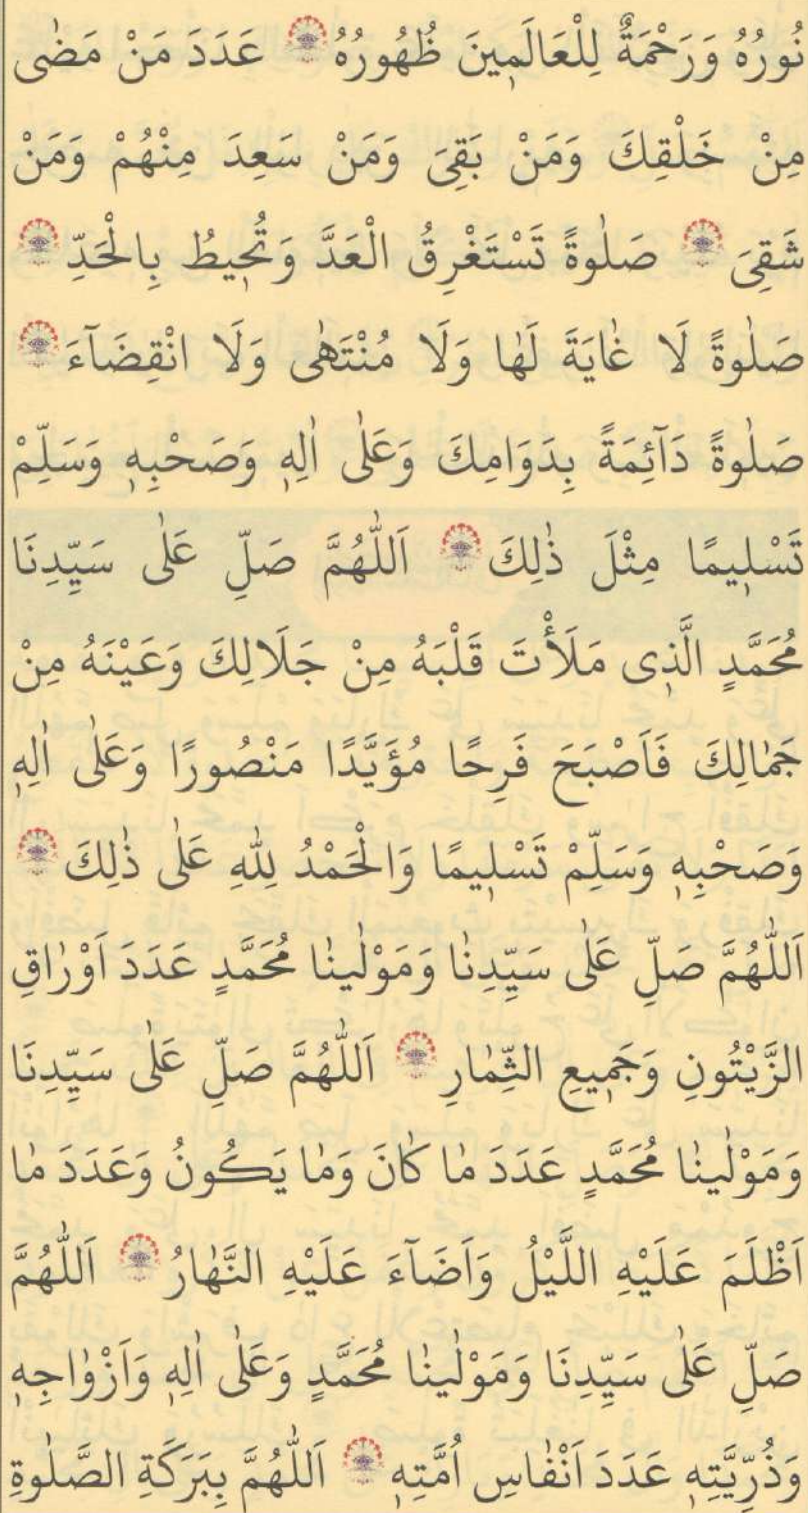 نُورُهُ وَرَحْمَةٌ لِلْعَالَمٖينَ ظُهُورُهُ عَدَدَ مَنْ مَضٰى
مِنْ خَلْقِكَ وَمَنْ بَقِىَ وَمَنْ سَعِدَ مِنْهُمْ وَمَنْ
شَقِىَ صَلٰوةً تَسْتَغْرِقُ الْعَدَّ وَتُحٖيطُ بِالْحَدِّ
صَلٰوةً لَا غٰايَةَ لَهٰا وَلَا مُنْتَهٰى وَلَا انْقِضَآءَ
صَلٰوةً دَآئِمَةً بِدَوَامِكَ وَعَلٰى اٰلِهٖ وَصَحْبِهٖ وَسَلِّمْ
تَسْلٖيمًا مِثْلَ ذٰلِكَ اَللّٰهُمَّ صَلِّ عَلٰى سَيِّدِنَا
مُحَمَّدٍ الَّذٖى مَلَأْتَ قَلْبَهُ مِنْ جَلَالِكَ وَعَيْنَهُ مِنْ
جَمٰالِكَ فَاَصْبَحَ فَرِحًا مُؤَيَّدًا مَنْصُورًا وَعَلٰى اٰلِهٖ
وَصَحْبِهٖ وَسَلِّمْ تَسْلٖيمًا وَالْحَمْدُ لِلّٰهِ عَلٰى ذٰلِكَ
اَللّٰهُمَّ صَلِّ عَلٰى سَيِّدِنٰا وَمَوْلٰينٰا مُحَمَّدٍ عَدَدَ اَوْرٰاقِ
الزَّيْتُونِ وَجَمٖيعِ الثِّمٰارِ اَللّٰهُمَّ صَلِّ عَلٰى سَيِّدِنَا
وَمَوْلٰينٰا مُحَمَّدٍ عَدَدَ مٰا كٰانَ وَمٰا يَكُونُ وَعَدَدَ مٰا
اَظْلَمَ عَلَيْهِ اللَّيْلُ وَاَضَآءَ عَلَيْهِ النَّهٰارُ اَللّٰهُمَّ
صَلِّ عَلٰى سَيِّدِنَا وَمَوْلٰينٰا مُحَمَّدٍ وَعَلٰى اٰلِهٖ وَاَزْوٰاجِهٖ
وَذُرِّيَّتِهٖ عَدَدَ اَنْفٰاسِ اُمَّتِهٖ اَللّٰهُمَّ بِبَرَكَةِ الصَّلٰوةِ